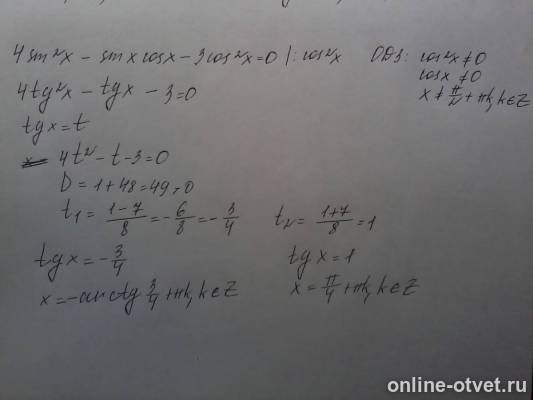 4sin²x - sinx cosx - 3cos²x = 0 |: cos²x ОДЗ: cos²x ≠ 0
cosx ≠ 0
4tg²x - tgx - 3 = 0
x ≠ π/2 + πk, k ∈ Z
tgx = t
4t² - t - 3 = 0
D = 1 + 48 = 49 > 0
t₁ = (1-7)/8 = -6/8 = -3/4 t₂ = (1+7)/8 = 1
tgx = -3/4 tgx = 1
x = -arctg 3/4 + πk, k ∈ Z x = π/4 + πk, k ∈ Z
online-otvet.ru